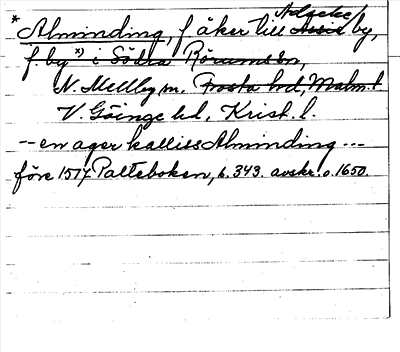 Adseke
* Alminding, f åker till Assie by,
f. by x) i Södra Rörums sn,
N. Mellby sn, Frosta hd, Malm. l.
V. Göinge hd, Krist. l.
-- en ager kalliss Alminding ---
före 1517 Palteboken, s. 343. avskr. o. 1650.